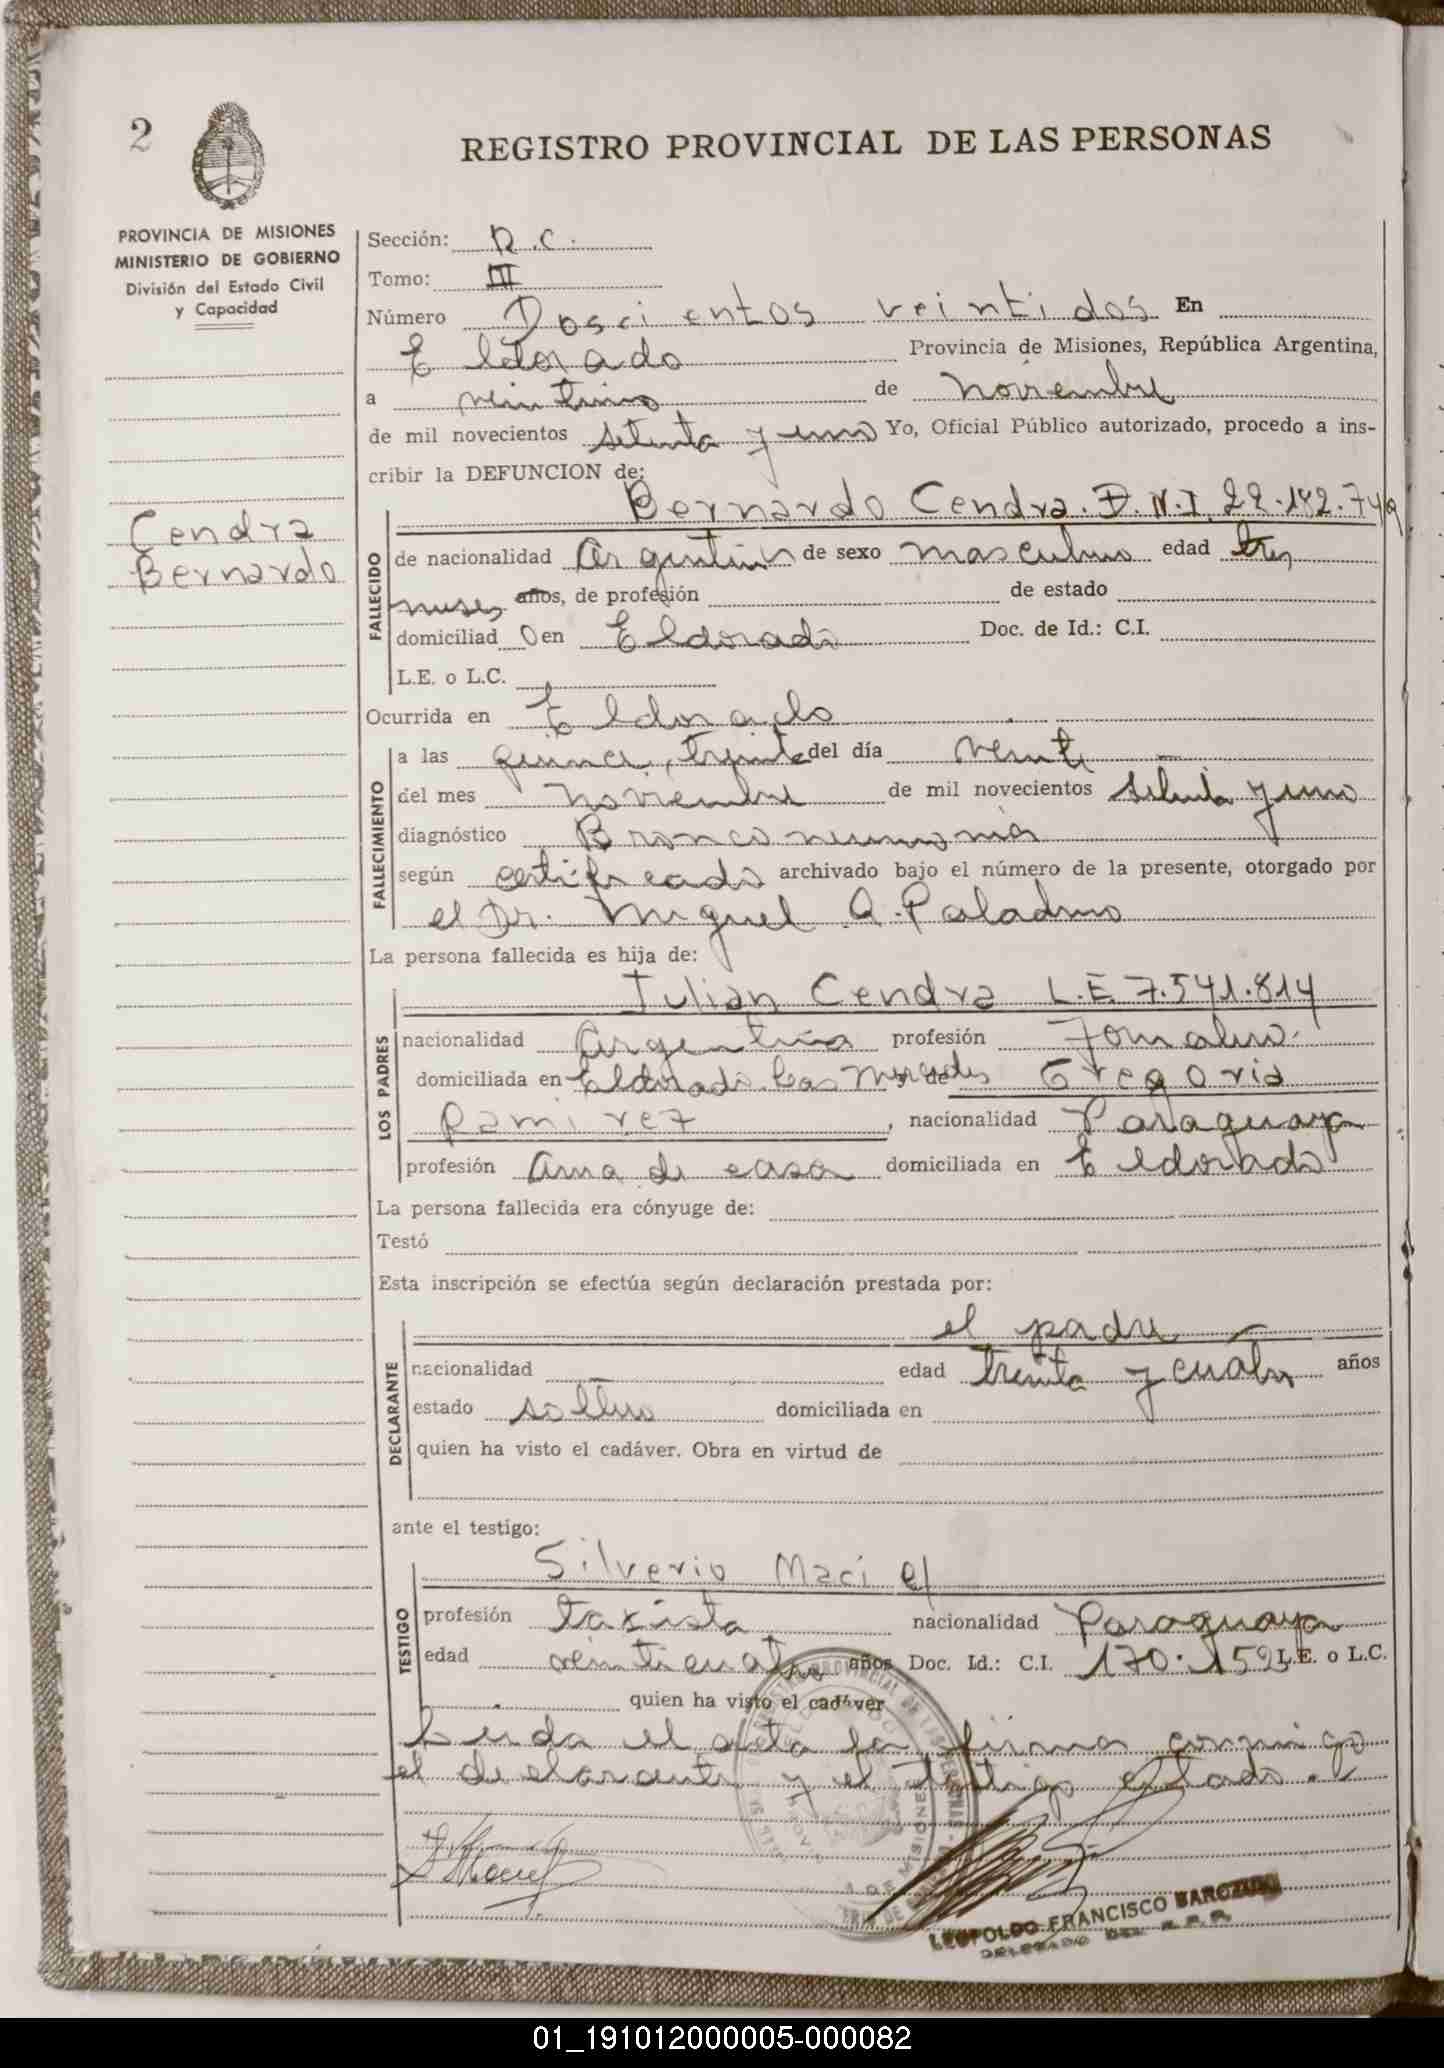 2
REGISTRO PROVINCIAL DE LAS PERSONAS
PROVINCIA DE MISIONES
MINISTERIO DE GOBIERNO
División del Estado Civil
y Capacidad
Cendra
Bernardo
Sección: D.C.
Tomo: III
Número Doscientos veintidos En
Eldorado Provincia de Misiones, República Argentina,
a veintiuno de noviembre
de mil novecientos setenta y uno Yo, Oficial Público autorizado, procedo a ins-
cribir la DEFUNCION de:
Bernardo Cendra. D.N.I. 22.182.749
FALLECIDO
de nacionalidad Argentina de sexo masculino edad tres
meses años, de profesión de estado
domiciliad o en Eldorado Doc. de Id.: C.I.
L.E. o L.C.
Ocurrida en Eldorado
FALLECIMIENTO
a las quince, treinta del día veinte
del mes noviembre de mil novecientos setenta y uno
diagnóstico Bronconeumonia
según certificado archivado bajo el número de la presente, otorgado por
el Dr. Miguel A. Paladino
La persona fallecida es hija de:
LOS PADRES
Julian Cendra L.E. 7.541.814
nacionalidad Argentina profesión Jornalero.
domiciliada en Eldorado Las Mercedes y de Gregoria
Ramirez, nacionalidad Paraguaya
profesión Ama de casa domiciliada en Eldorado
La persona fallecida era cónyuge de:
Testó
Esta inscripción se efectúa según declaración prestada por:
DECLARANTE
el padre
nacionalidad edad treinta y cuatro años
estado soltero domiciliada en
quien ha visto el cadáver. Obra en virtud de
ante el testigo:
TESTIGO
Silverio Maciel
profesión taxista nacionalidad Paraguaya
edad veinticuatro años Doc. Id.: C.I. 170.152 L.E. o L.C.
quien ha visto el cadáver
Leida el acta la firma conmigo
el declarante y el testigo citado.
LEOPOLDO FRANCISCO
DELEGADO DEL R.P.P.
01_191012000005-000082